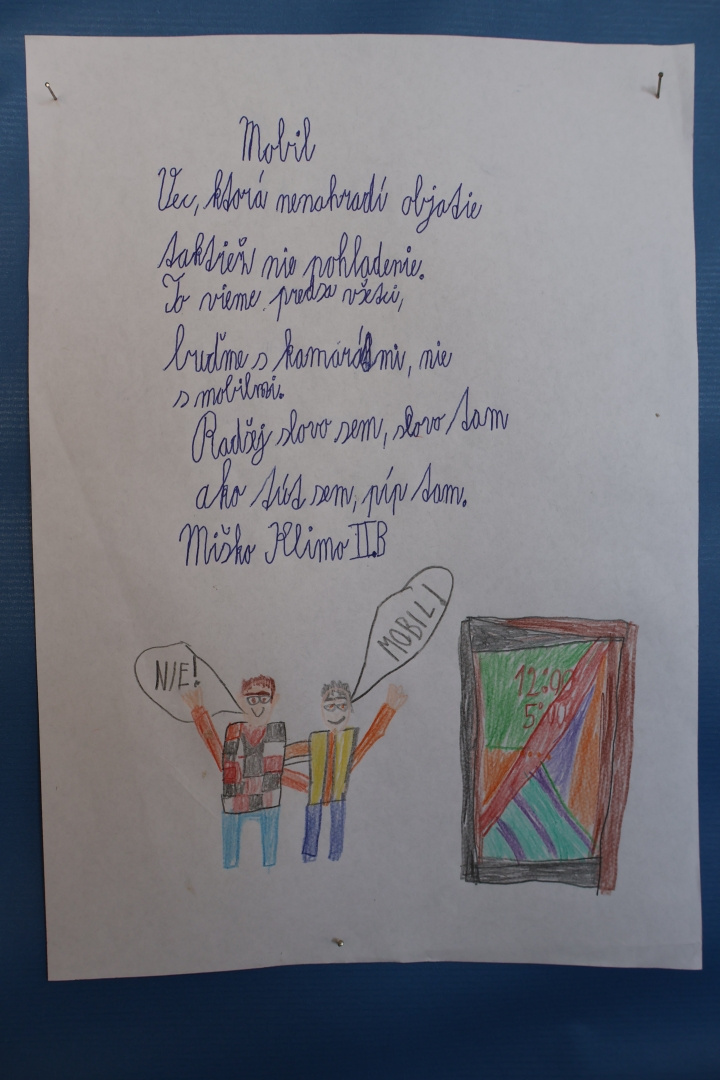 Mobil
Vec, ktorá nenahradí objatie
taktiež nie pohladenie.
To vieme predsa všetci,
buďme s kamarátmi, nie
s mobilmi.
Radšej slovo sem, slovo tam
ako tút sem, píp tam.
Miško Klimo II.B
NIE!
MOBIL!
12:00
5:00